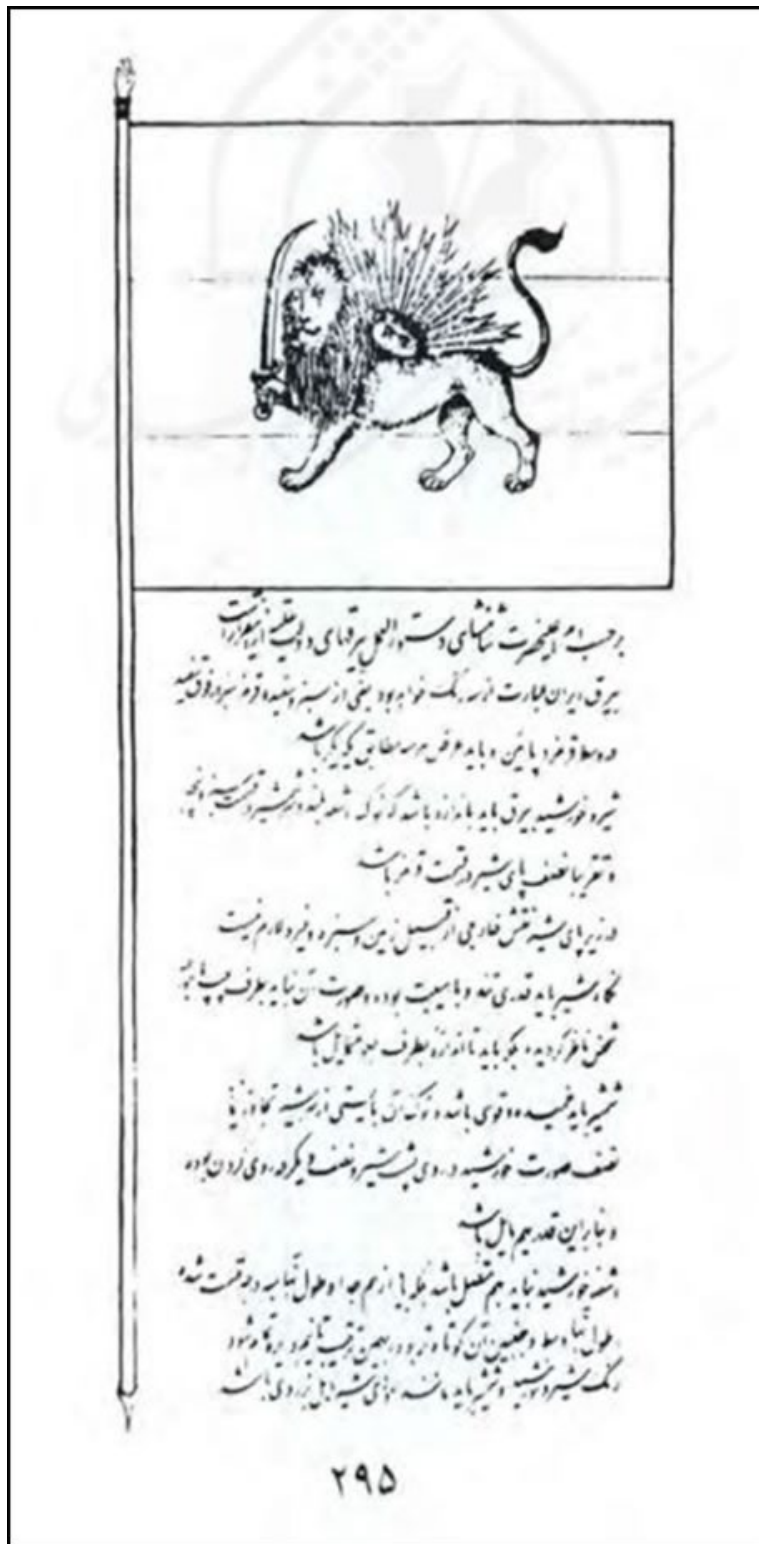 برحسب امر اعلیحضرت شاهنشاهی دستورالعمل بیرقهای دولت علیه از اینقرار است
بیرق ایران عبارت از سه رنگ خواهد بود یعنی از سبز و سفید و قرمز سبز در فوق سفید
در وسط قرمز در پایین و باید عرض هر سه مطابق یکدیگر باشد
شیر و خورشید بیرق باید باندازه باشد که اشعه و شمشیر در قسمت سبز
و تقریبا نصف پای شیر در قسمت قرمز باشد
در زیر پای شیر نقش خارجی از قبیل زمین و سبزه و غیره لازم نیست
نگاه شیر باید قدری تند و با مهیبت بوده و صورت آن نباید بطرف
شخص ناظر گردیده بلکه باید تا اندازه بطرف جلو متمایل باشد
شمشیر باید خمیده و قوی باشد و نوک آن بایستی از سر شیر تجاوز
نصف صورت خورشید در روی پشت شیر و نصف دیگر در روی گردن بوده
و بنابراین قدر هم مایل باشد
اشعه خورشید نباید بهم متصل باشد بلکه از هم جدا و طول آنها به قسمت شده
طول آنها وسط و جنبین آن کوتاه تر بوده بهمین ترتیب
رنگ شیر و خورشید و شمشیر باید مانند موی شیر مایل بزردی باشد
۲۹۵